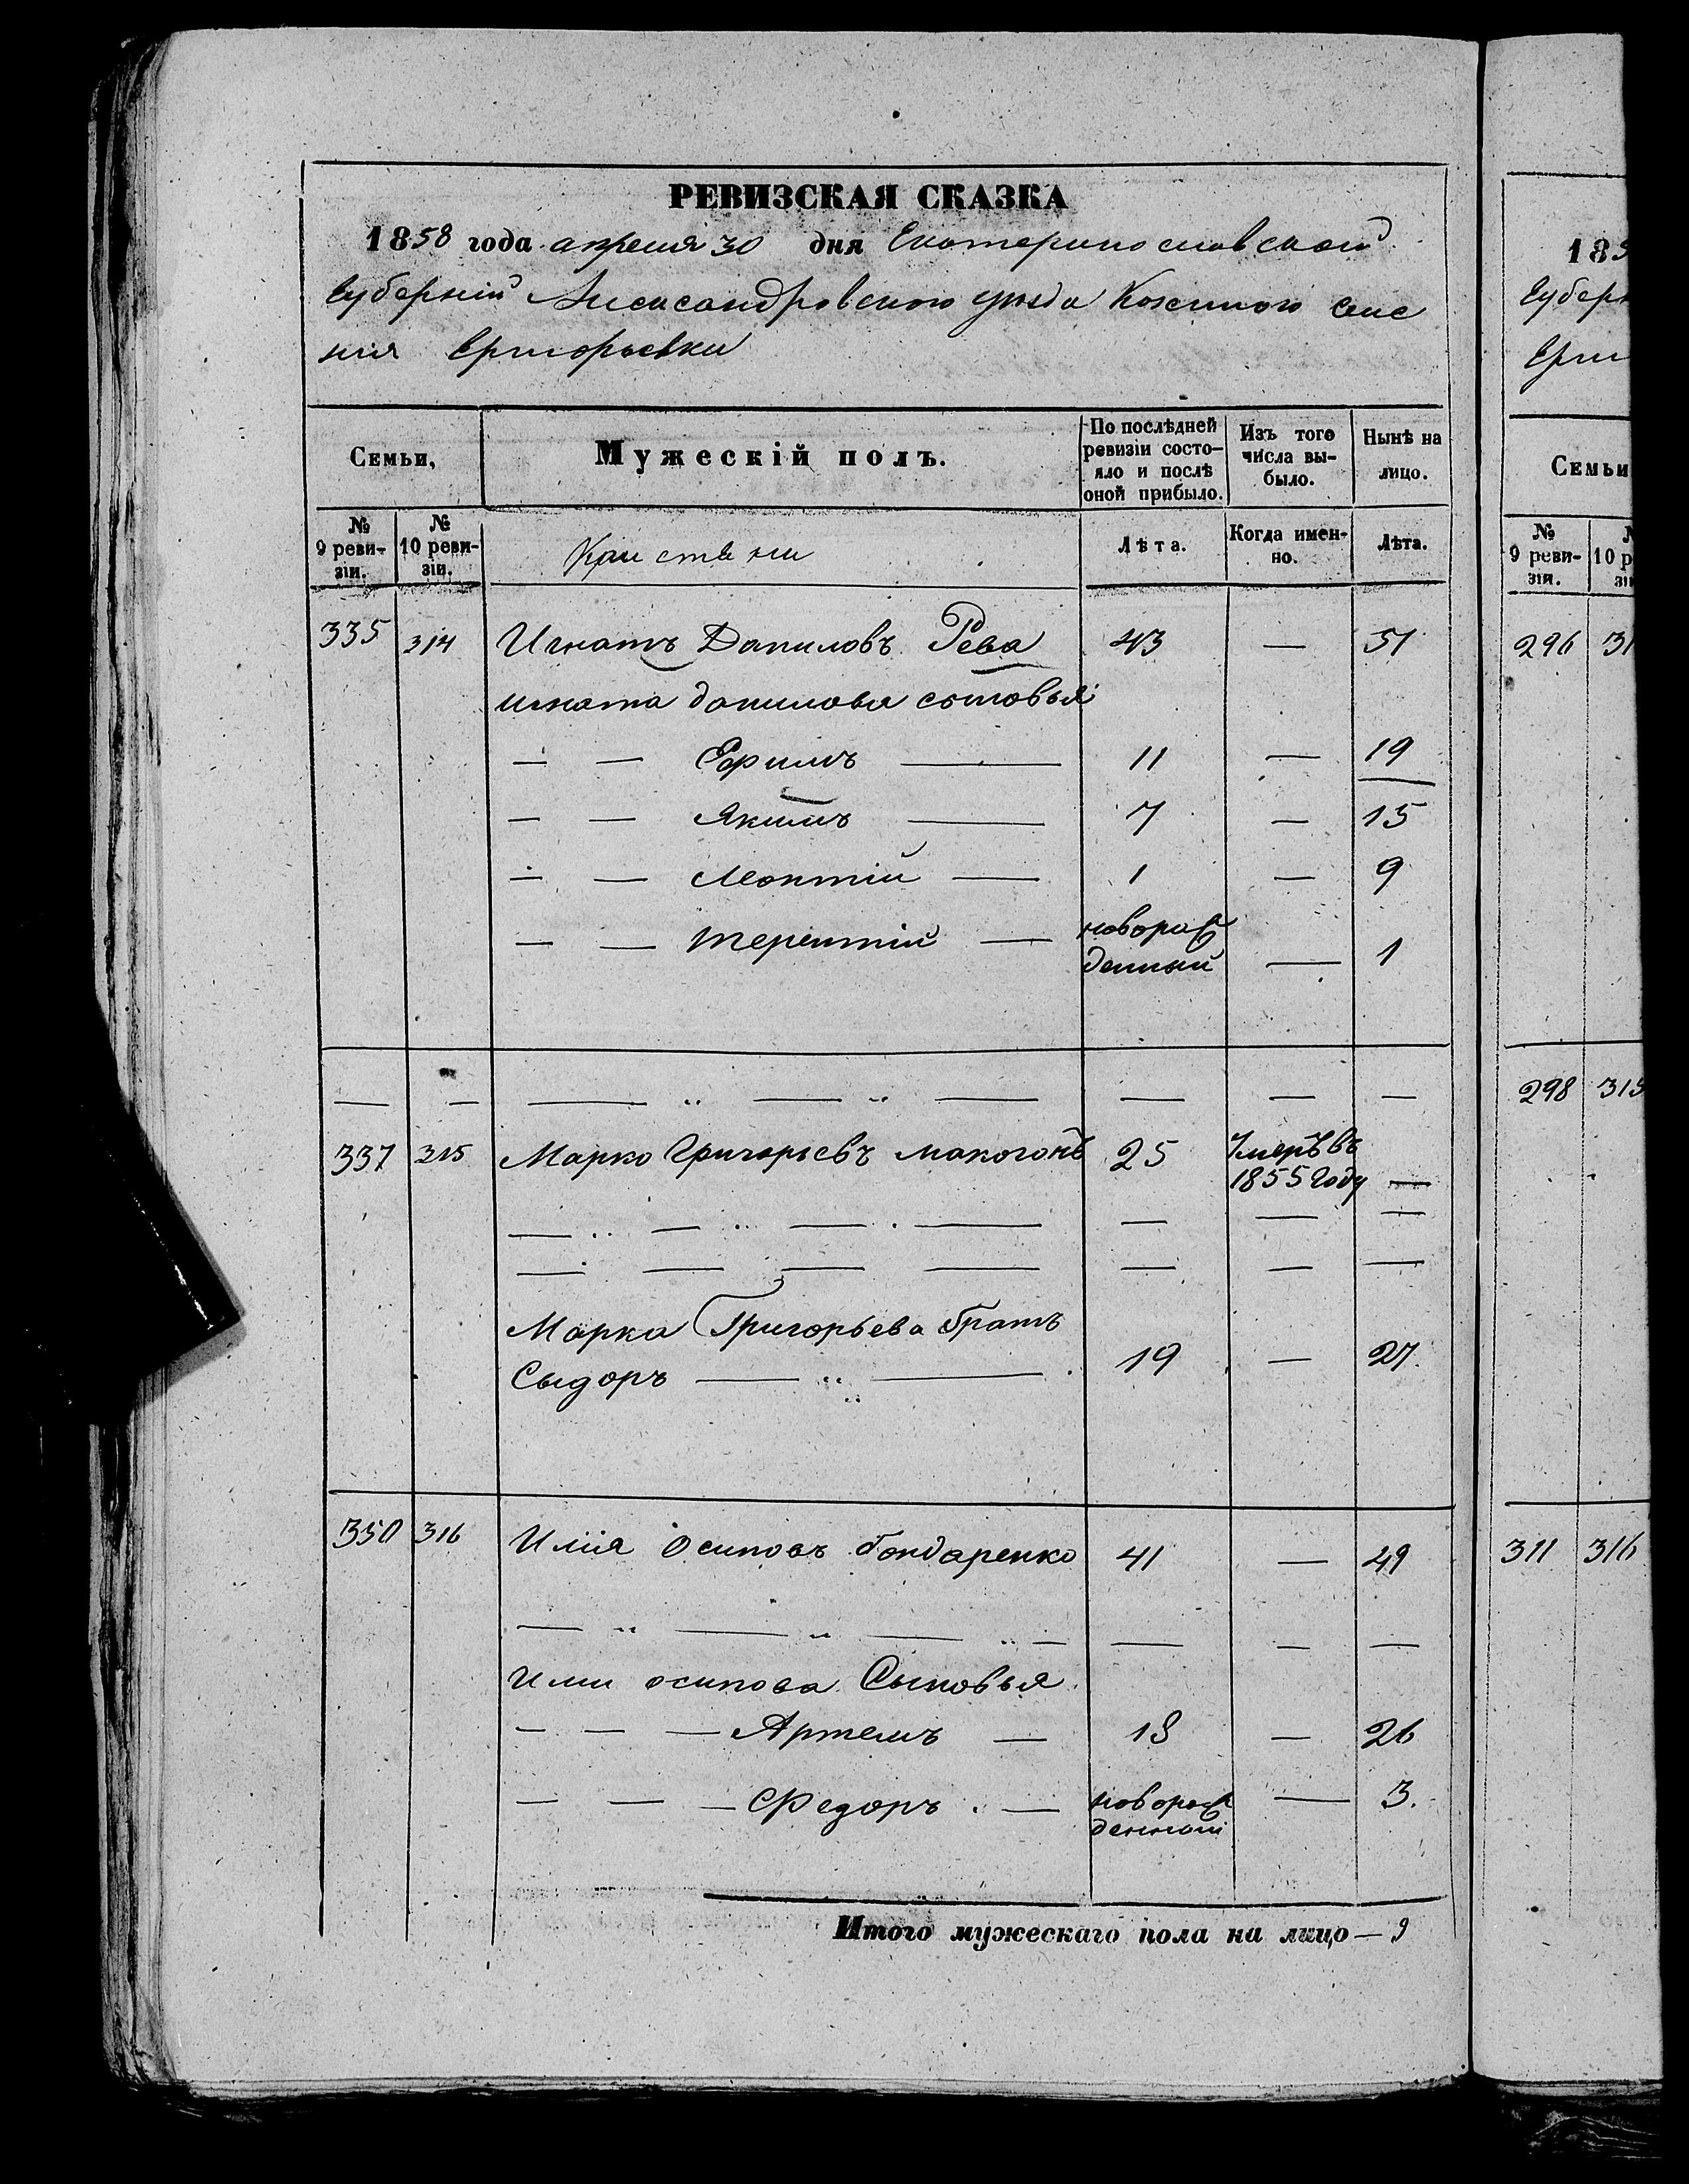 РЕВИЗСКАЯ СКАЗКА
1858 года апреля 30 дня Екатеринославской
Губерніи Александровского уѣзда Козенного селе
нія Григорьевки
Семьи,
Мужескій полъ.
По послѣдней ревизіи состо-
яло и послѣ оной прибыло.
Изъ того числа вы-
было.
Нынѣ на лицо.
№ 9 реви-
зіи.
№ 10 реви-
зіи.
Лѣта.
Когда имен-
но.
Лѣта.
335 314 Игнатъ Даниловъ Рева 43 — 51
игната данилова сыновья
— — Ефимъ — 11 — 19
— — Якимъ — 7 — 15
— — Леонтій — 1 — 9
— — терентій — новорож
денный — 1
— — — „ — „ — — — —
337 315 Марко Григорьевъ макогонъ 25 Умеръ въ
1855 году —
— „ — „ — . — — — —
— — — — — — —
Марка Григорьева братъ
Сыдоръ — „ — 19 — 27.
350 316 Илія Осиповъ бондаренко 41 — 49
— „ — „ — „ — — — —
Или осипова Сыновья
— — — Артемъ — 18 — 26
— — — Федоръ . — новорож
денный — 3.
Итого мужескаго пола на лицо — 9
185
Губерн
Гри
Семьи
№ 9 реви-
зіи.
10 р
296 31
298 315
311 316